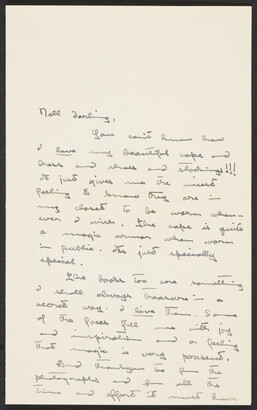 Nell darling,
You can't know how
I love my beautiful cape and
dress and shoes and stockings!!!
It just gives me the nicest
feeling to know they are in
my closet to be worn when-
ever I wish. The cape is quite
a magic armor when worn
in public. It's just specially
special.
The books too are something
I shall always treasure in a
secret way. I love them. Some
of the faces fill me with joy
and inspiration and a feeling
that magic is very present.
And thankyou too for the
photographs and for all the
time and effort it must have